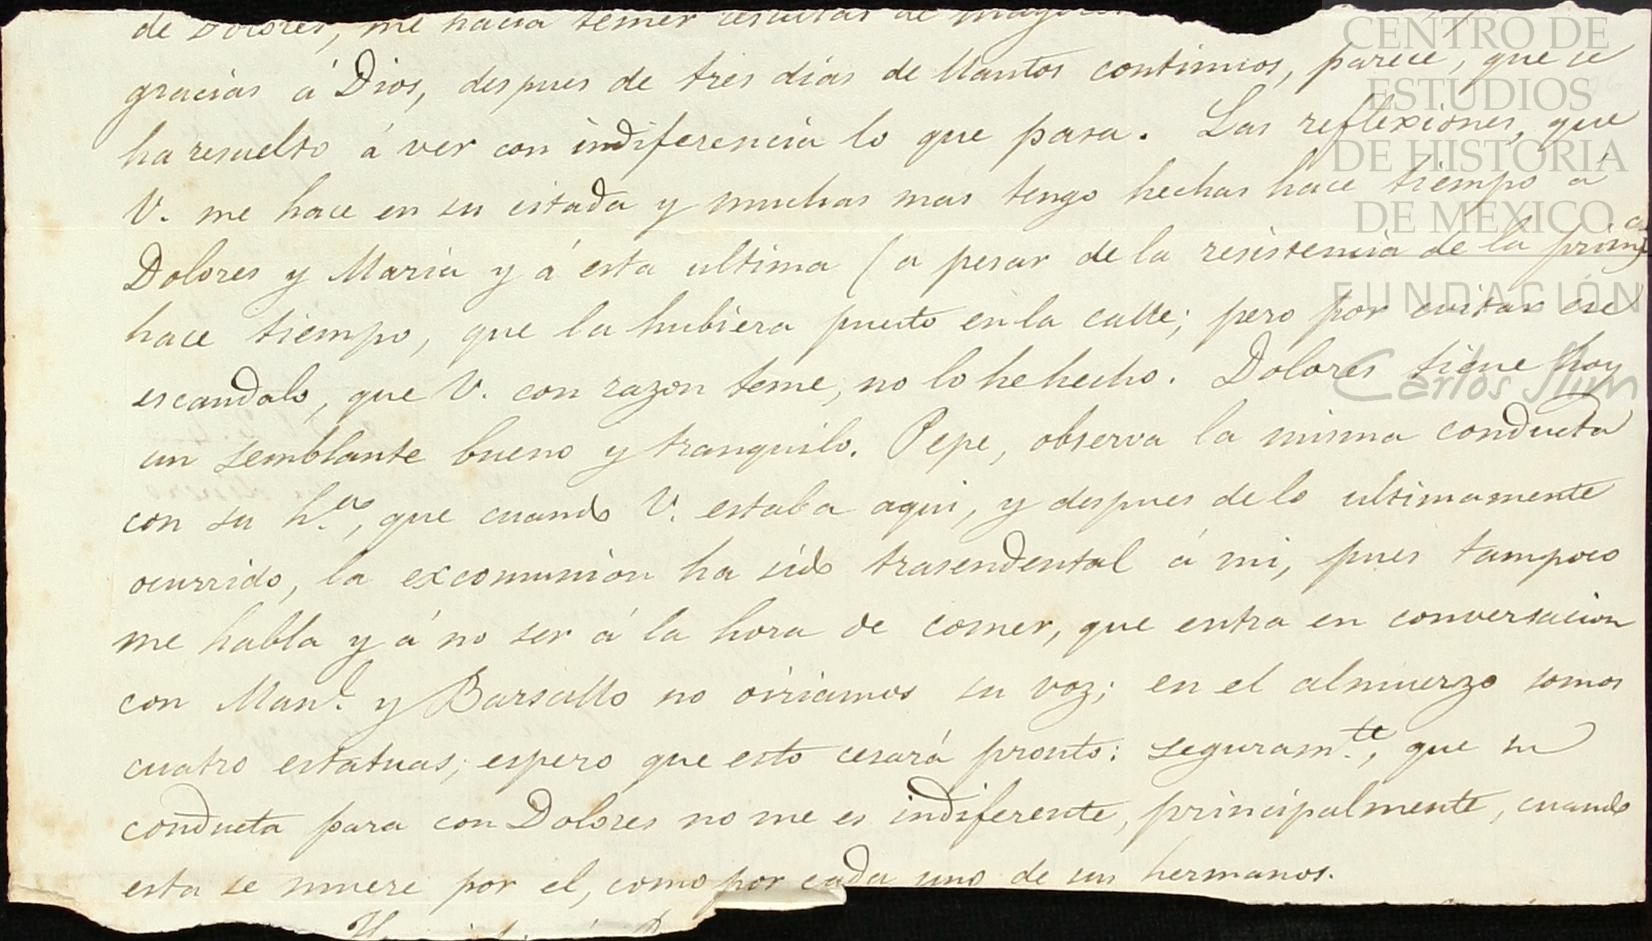 de Dolores, me hacia temer resultas de
CENTRO DE
ESTUDIOS
DE HISTORIA
DE MÉXICO
FUNDACIÓN
Carlos Slim
gracias á Dios, despues de tres dias de llantos continuos, parece, que se
ha resuelto á ver con indiferencia lo que pasa. Las reflexiones, que
V. me hace en su citada y muchas mas tengo hechas hace tiempo á
Dolores y Maria y á esta ultima (a pesar de la resistencia de la
hace tiempo, que la hubiera puesto en la calle; pero por evitar ese
escandalo, que V. con razon teme, no lo he hecho. Dolores tiene hoy
un semblante bueno y tranquilo. Pepe, observa la misma conducta
con su h.ª, que cuando V. estaba aqui, y despues de lo ultimamente
ocurrido, la excomunion ha sido trasendental á mi, pues tampoco
me habla y á no ser á la hora de comer, que entra en conversacion
con Man.l y Barsallo no oiriamos su voz; en el almuerzo somos
cuatro estatuas; espero que esto cesará pronto: seguram.te, que su
conducta para con Dolores no me es indiferente, principalmente, cuando
esta se muere por el, como por cada uno de sus hermanos.